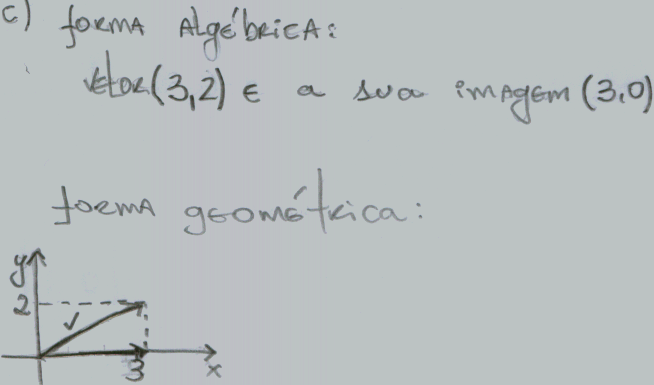 c) forma Algébrica:
vetor (3,2) e a sua imagem (3,0)
forma geométrica:
y
2
v
3
x